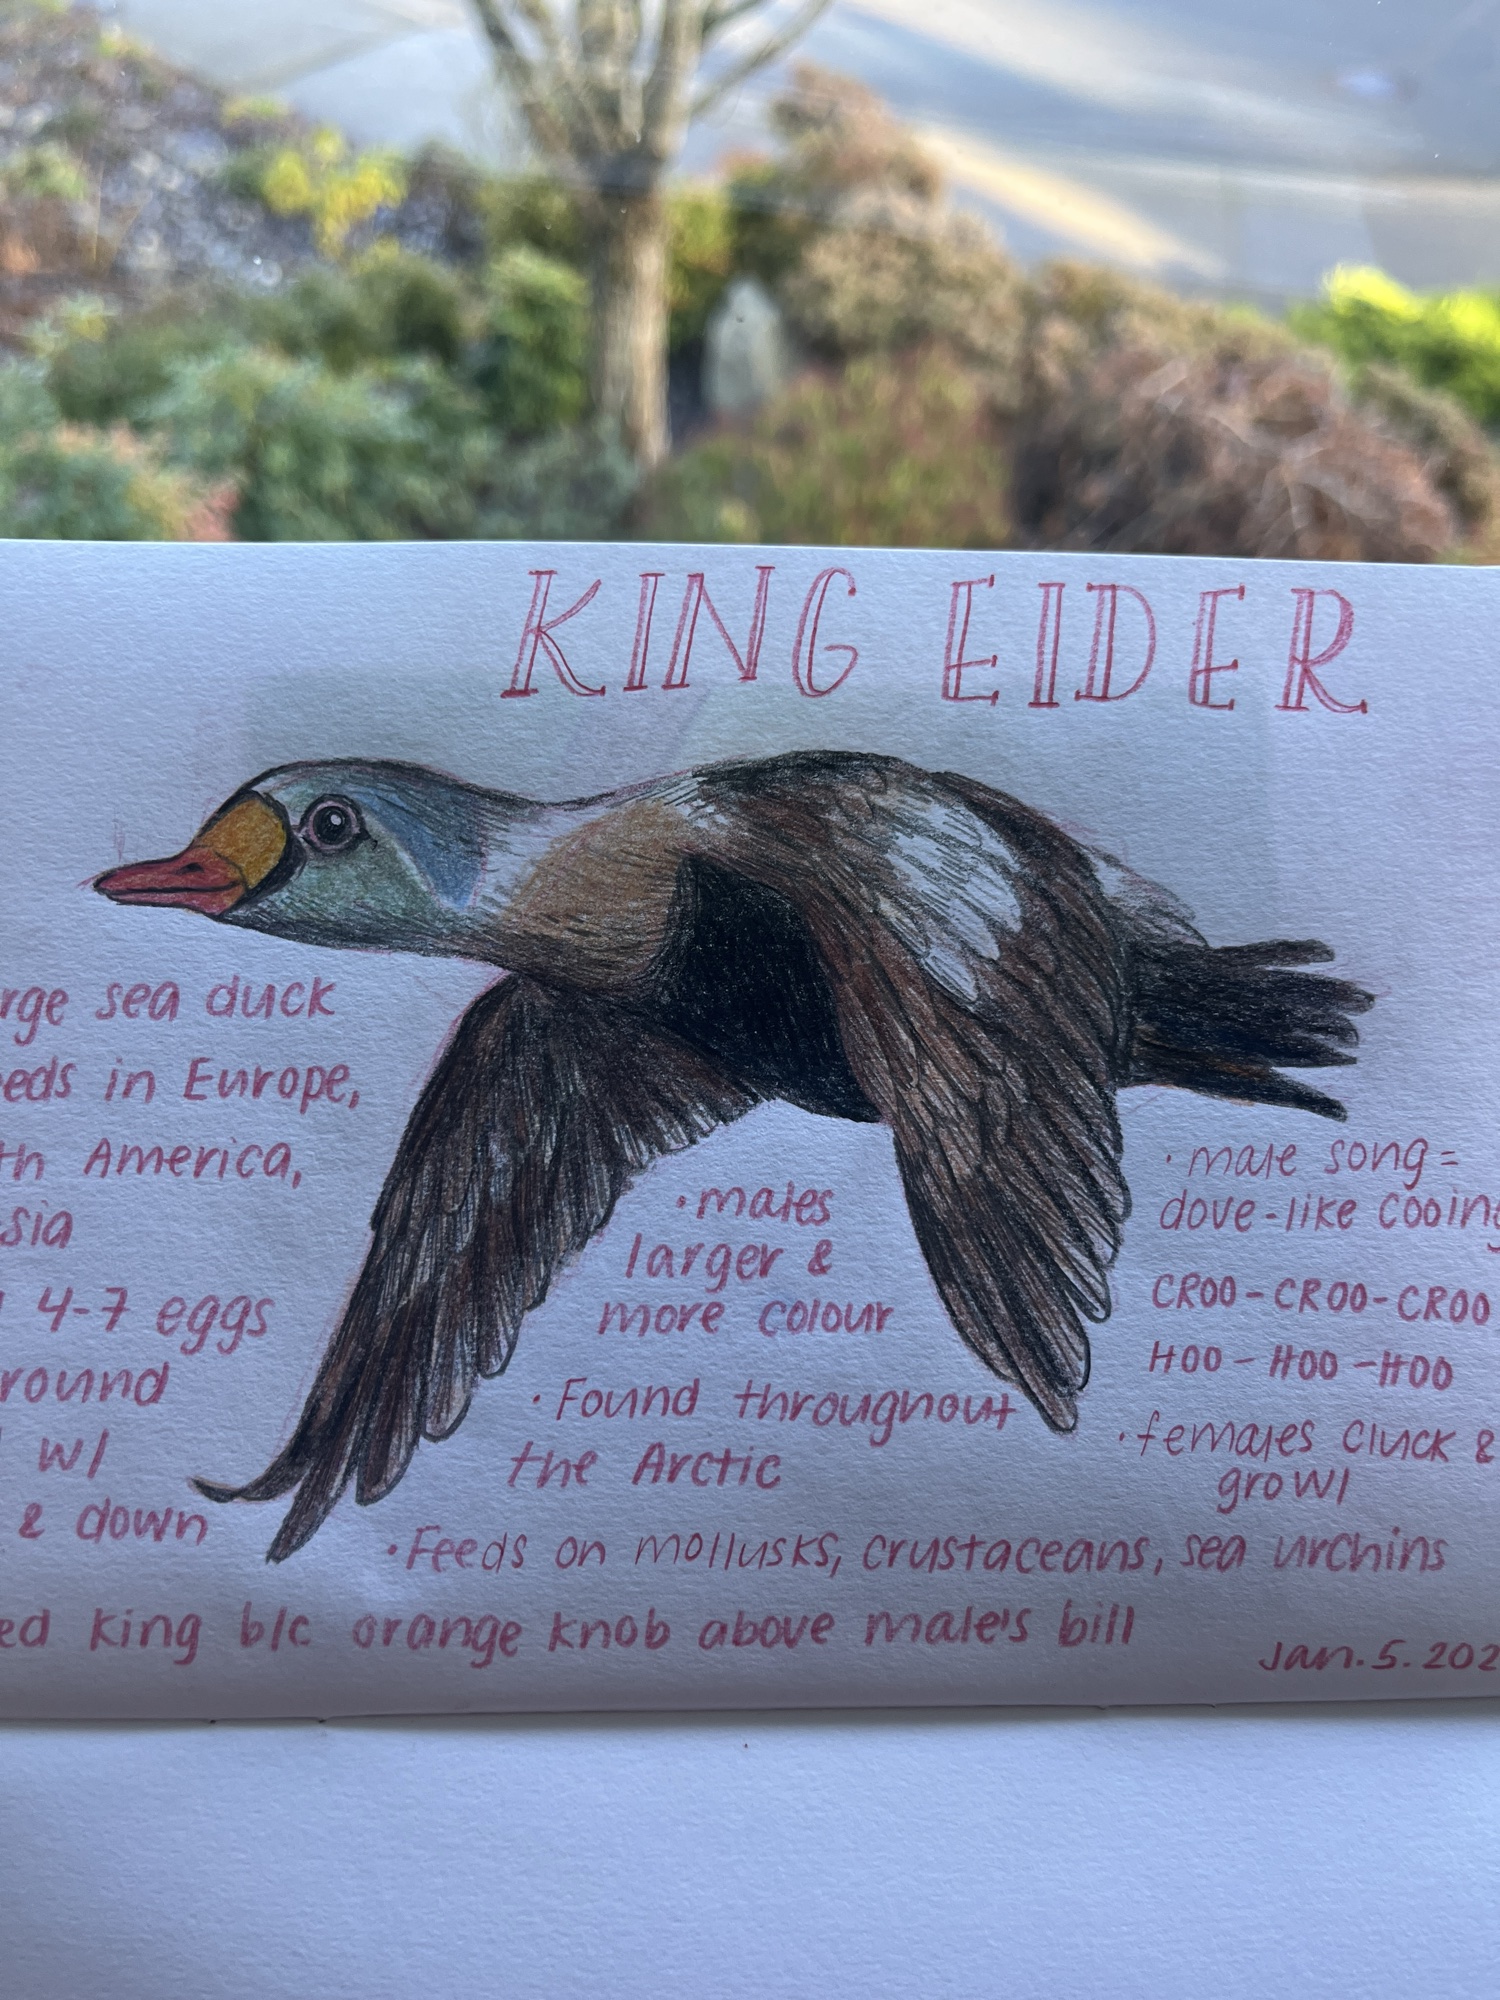 KING EIDER
rge sea duck
eeds in Europe,
th America,
sia
4-7 eggs
round
w/
& down
• males
larger &
more colour
• Found throughout
the Arctic
• male song =
dove-like cooing
CROO-CROO-CROO
HOO-HOO-HOO
• females cluck &
growl
• Feeds on mollusks, crustaceans, sea urchins
ed King b/c orange knob above male's bill
Jan. 5. 202